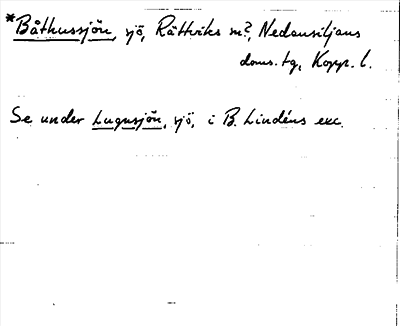 *Båthussjön, sjö, Rättviks sn?, Nedansiljans
doms. tg, Kopp. l.
Se under Lugnsjön, sjö, i B. Lindéns exc.